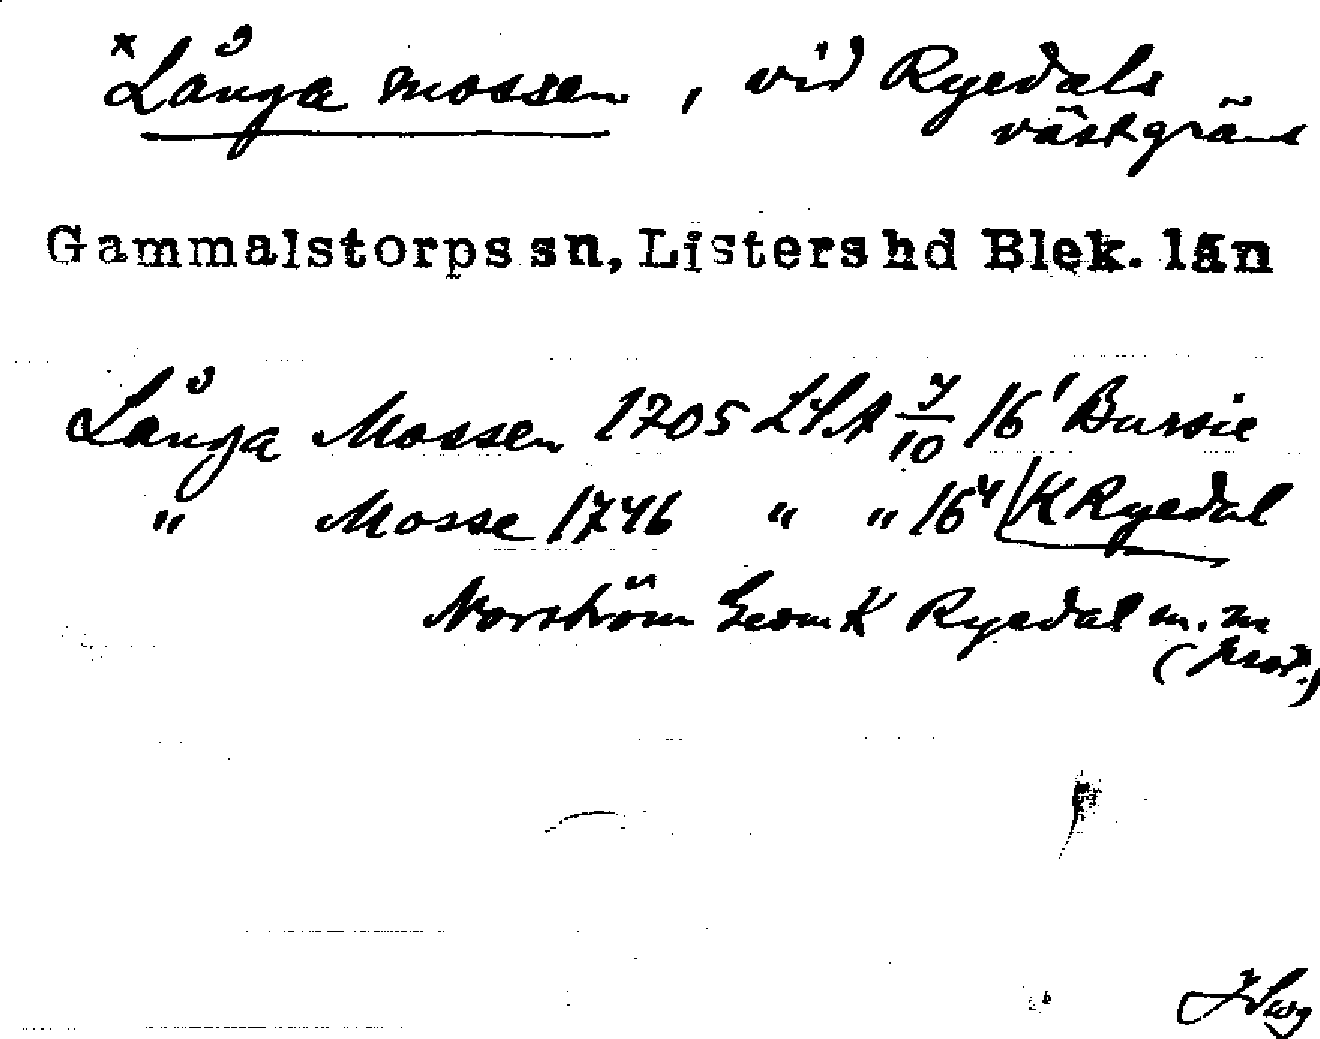 *Långa mossen, vid Ryedals
västgräns
Gammalstorps sn, Listers hd Blek. län
Långa Mossen 1705 LSA 7/10 /16¹ Bursie
" Mosse 1746 " " /16⁴ /K Ryedal
Norström Geom K Ryedal m.m
(prot.)